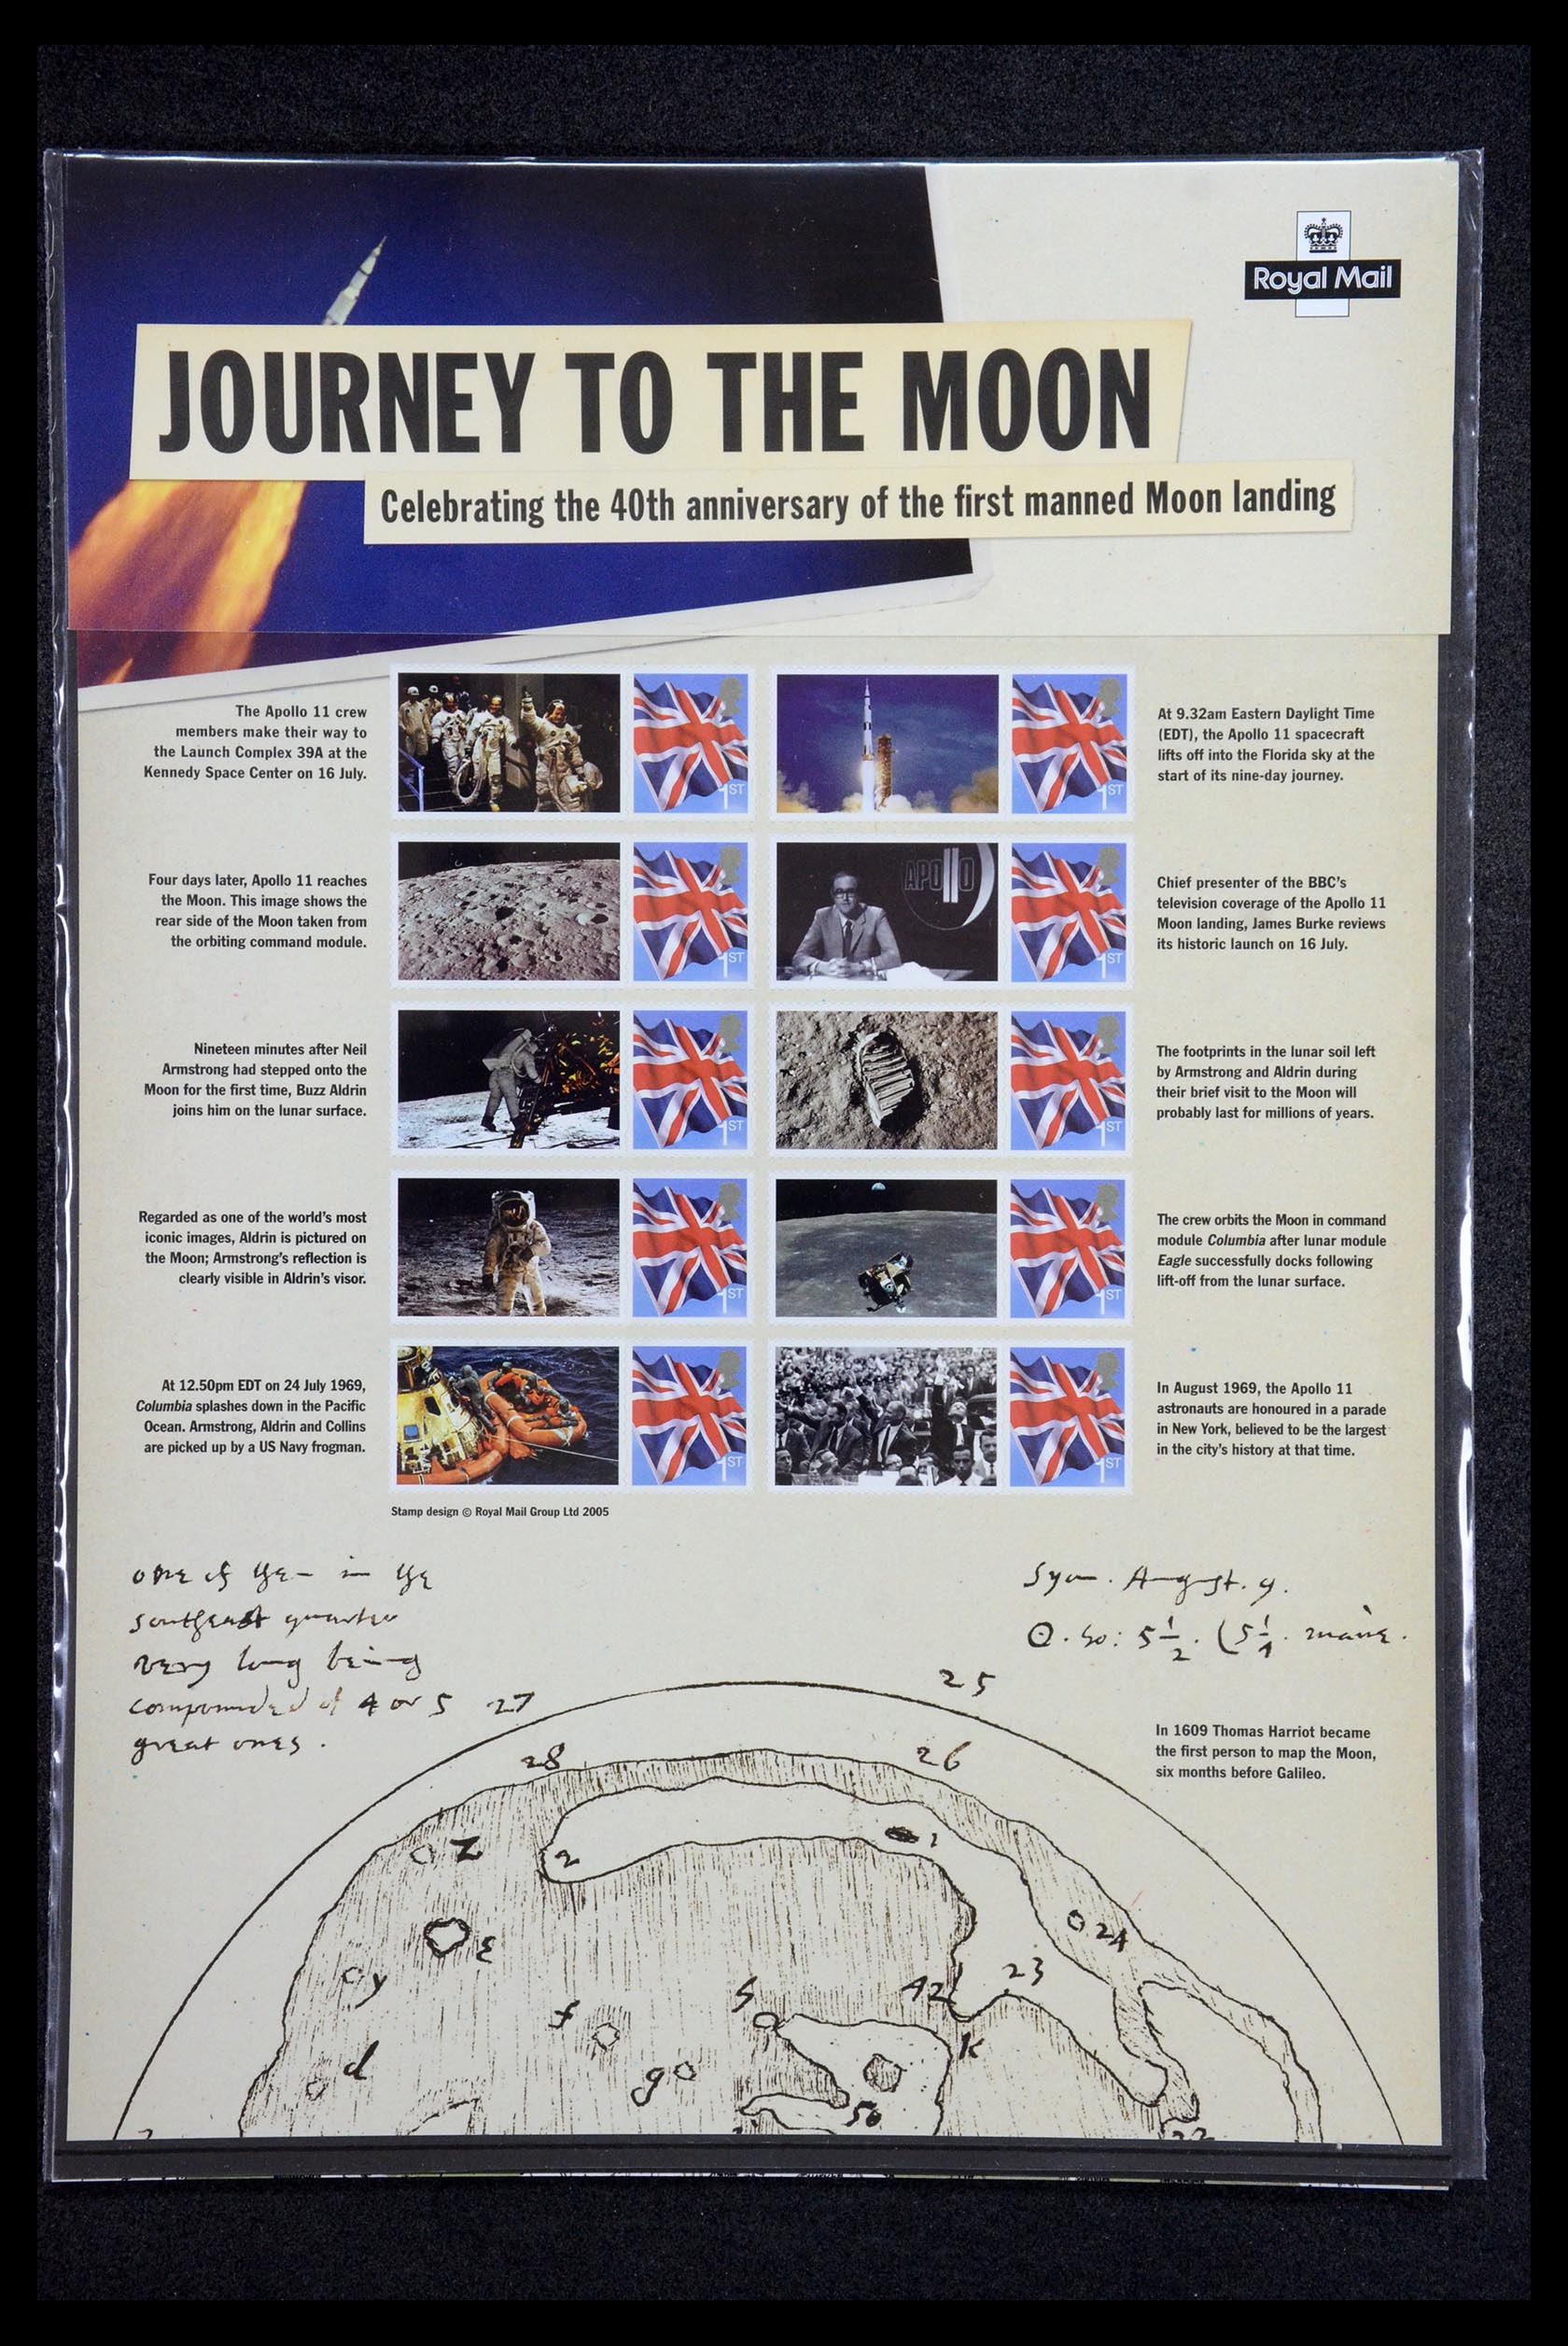 Royal Mail
JOURNEY TO THE MOON
Celebrating the 40th anniversary of the first manned Moon landing
The Apollo 11 crew
members make their way to
the Launch Complex 39A at the
Kennedy Space Center on 16 July.
1ST
1ST
At 9.32am Eastern Daylight Time
(EDT), the Apollo 11 spacecraft
lifts off into the Florida sky at the
start of its nine-day journey.
Four days later, Apollo 11 reaches
the Moon. This image shows the
rear side of the Moon taken from
the orbiting command module.
1ST
APOLLO
1ST
Chief presenter of the BBC's
television coverage of the Apollo 11
Moon landing, James Burke reviews
its historic launch on 16 July.
Nineteen minutes after Neil
Armstrong had stepped onto the
Moon for the first time, Buzz Aldrin
joins him on the lunar surface.
1ST
1ST
The footprints in the lunar soil left
by Armstrong and Aldrin during
their brief visit to the Moon will
probably last for millions of years.
Regarded as one of the world's most
iconic images, Aldrin is pictured on
the Moon; Armstrong's reflection is
clearly visible in Aldrin's visor.
1ST
1ST
The crew orbits the Moon in command
module Columbia after lunar module
Eagle successfully docks following
lift-off from the lunar surface.
At 12.50pm EDT on 24 July 1969,
Columbia splashes down in the Pacific
Ocean. Armstrong, Aldrin and Collins
are picked up by a US Navy frogman.
1ST
1ST
In August 1969, the Apollo 11
astronauts are honoured in a parade
in New York, believed to be the largest
in the city's history at that time.
Stamp design © Royal Mail Group Ltd 2005
one of in the
southeast quarter
very long being
compounded of 4 or 5
great ones.
Syon. August. 9.
5 1/2
25
27
28
26
In 1609 Thomas Harriot became
the first person to map the Moon,
six months before Galileo.
z
2
1
24
ε
y
23
42
f
k
d
g
50
22